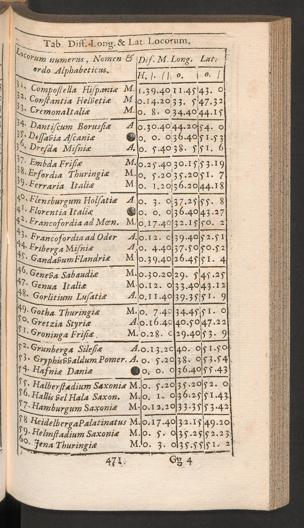 Tab. Dif. Long. & Lat. Locorum.
Locorum numerus, Nomen & Dif. M. Long. Lat.
ordo Alphabeticus. H. |. || o. | o. |
31. Compostella Hispaniæ M. 1.39.40 11.45 43. 0
32. Constantia Helvetiæ M. 0.14.20 33. 5 47.32
33. Cremona Italiæ M. 0. 8. 0 34.40 44.15
34. Dantiscum Borussiæ A. 0.30.40 44.20 54. 0
35. Dessavia Ascaniæ 0. 0. 0 36.40 51.53
36. Dresda Misniæ A. 0. 5.40 38. 5 51. 6
37. Embda Frisiæ M. 0.25.40 30.15 53.19
38. Erfordia Thuringiæ M. 0. 5.20 35.20 51. 7
39. Ferraria Italiæ M. 0. 1.20 36.20 44.18
40. Flensburgum Holsatiæ A. 0. 3. 0 37.25 55. 8
41. Florentia Italiæ 0. 0. 0 36.40 43.27
42. Francofordia ad Mœn. M. 0.17.40 32.15 50. 2
43. Francofordia ad Oder A. 0.12. 0 39.40 52.51
44. Friberga Misniæ A. 0. 4.40 37.50 50.52
45. Gandavum Flandriæ M. 0.39.40 26.45 51. 4
46. Geneva Sabaudiæ M. 0.30.20 29. 5 45.25
47. Genua Italiæ M. 0.12. 0 33.40 43.12
48. Gorlitium Lusatiæ A. 0.11.40 39.35 51. 9
49. Gotha Thuringiæ M. 0. 7.40 34.45 51. 0
50. Gretzia Styriæ A. 0.16.40 40.50 47.22
51. Groninga Frisiæ M. 0.28. 0 29.40 53. 9
52. Grunberga Silesiæ A. 0.13.20 40. 0 51.50
53. Gryphisvvaldum Pomer. A. 38. 0 53.54
54. Hafniæ Daniæ 0. 0. 0 36.40 55.43
55. Halberstadium Saxoniæ M. 0. 5.20 35.20 52. 0
56. Hallis vel Hala Saxon. M. 0. 1. 0 36.25 51.43
57. Hamburgum Saxoniæ M. 0.12.20 33.35 53.42
58 Heidelberga Palatinatus M. 0.17.40 32.15 49.20
59. Helmstadium Saxoniæ M. 0. 5. 0 35.25 52.23
60. Jena Thuringiæ M. 0. 3. 0 35.55 51. 2
471. Gg 4